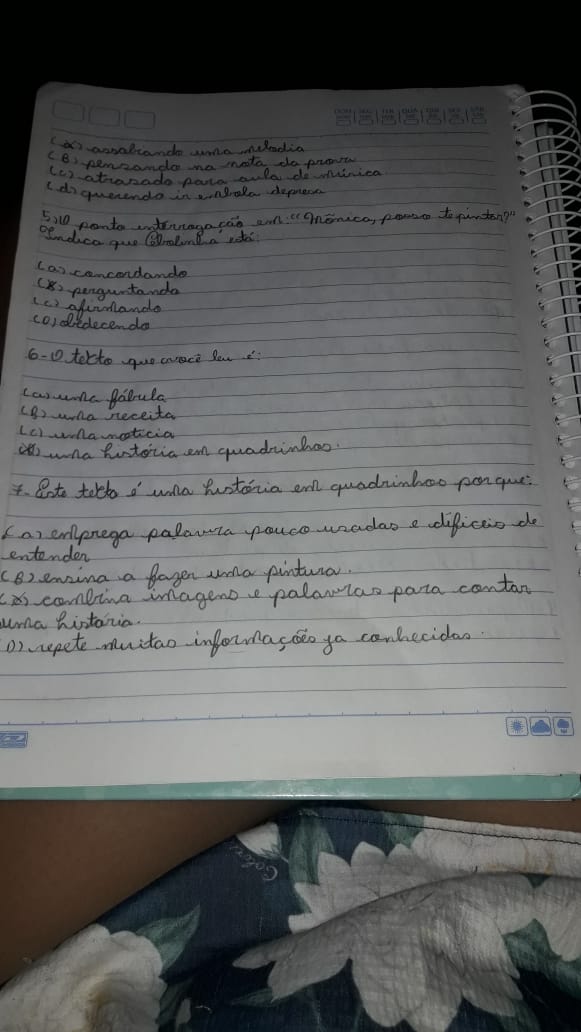 DOM SEG TER QUA QUI SEX SÁB
(X) assobiando uma melodia
(B) pensando na nota da prova
(C) atrasado para aula de música
(d) querendo ir embola depresa
5) O ponto interrogação em: "Mônica, posso te pintar?"
Indica que Cebolinha está:
(a) concordando
(X) perguntando
(c) afirmando
(D) obedecendo
6-O texto que você leu é:
(a) uma fábula
(B) uma receita
(c) uma noticia
(X) uma história em quadrinhos.
7- Este texto é uma história em quadrinhos porque:
(a) emprega palavra pouco usadas e difíceis de
entender
(B) ensina a fazer uma pintura.
(X) combina imagens e palavras para contar
uma história.
(D) repete muitas informações ja conhecidas.